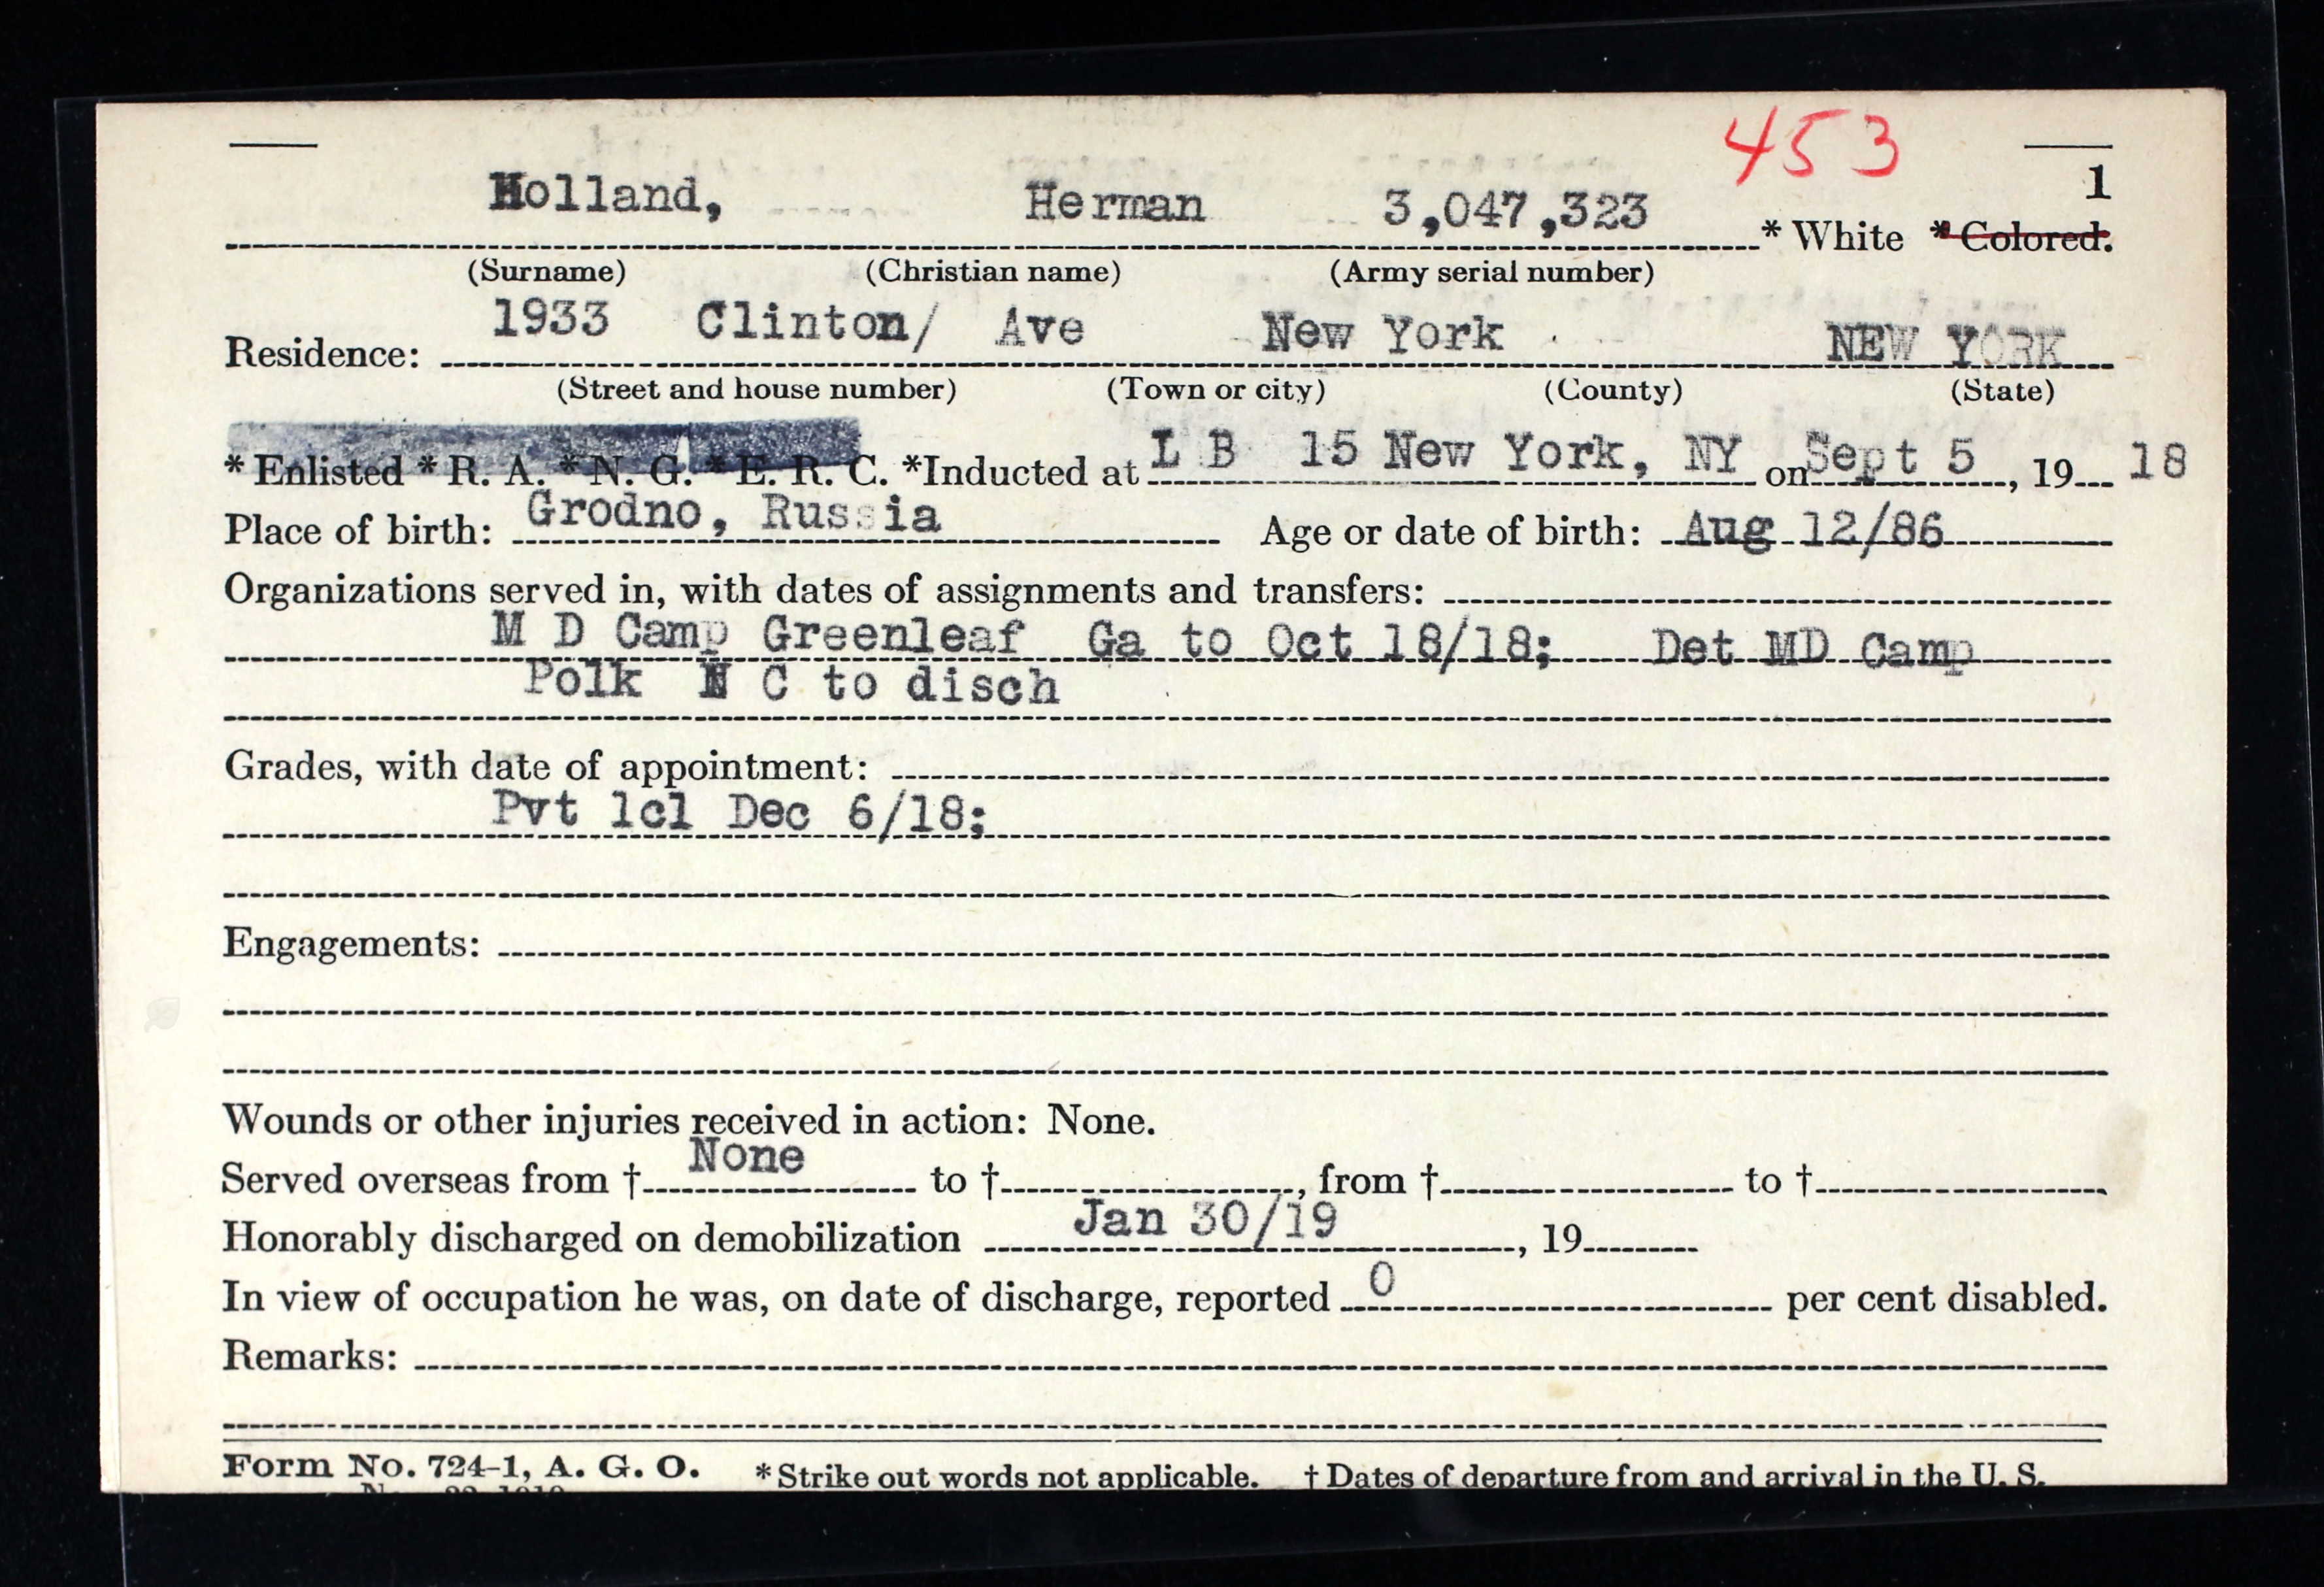 453
1
Holland, Herman 3,047,323 * White * Colored.
(Surname) (Christian name) (Army serial number)
Residence: 1933 Clinton/ Ave New York NEW YORK
(Street and house number) (Town or city) (County) (State)
* Enlisted * R. A. * N. G. * E. R. C. *Inducted at L B 15 New York, NY on Sept 5, 19 18
Place of birth: Grodno, Russia Age or date of birth: Aug 12/86
Organizations served in, with dates of assignments and transfers:
M D Camp Greenleaf Ga to Oct 18/18; Det MD Camp
Polk N C to disch
Grades, with date of appointment:
Pvt 1cl Dec 6/18;
Engagements:
Wounds or other injuries received in action: None.
Served overseas from † None to †, from † to †
Honorably discharged on demobilization Jan 30/19, 19
In view of occupation he was, on date of discharge, reported 0 per cent disabled.
Remarks:
Form No. 724-1, A. G. O. * Strike out words not applicable. † Dates of departure from and arrival in the U. S.